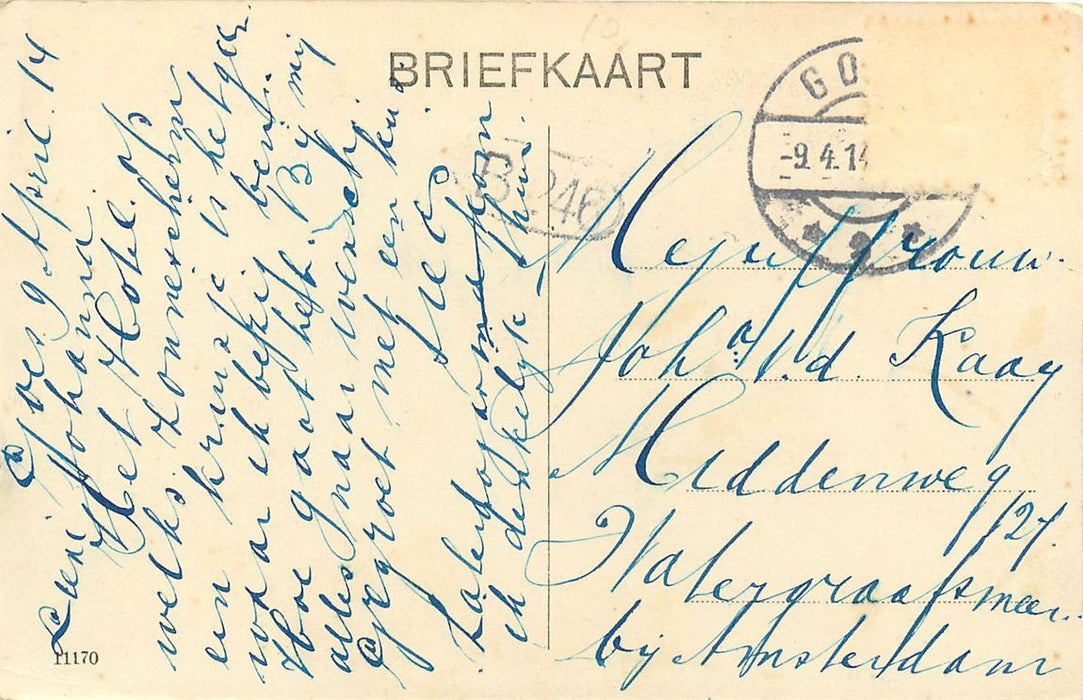 BRIEFKAART
GO
-9.4.14
B.246
Goes 9 April. 14
Lieve Johanna
Het Hotel op
welks zonnescherm
een kruisje is het gene
waar ik bezig ben.
Hoe gaat het? Bij mij
alles naar wensch.
Gegroet met een kus
Zaterdagavond kom
ik denkelijk thuis.
Mejuffrouw
Joha v.d. Kaay
Middenweg
127.
Watergraafsmeer.
bij Amsterdam
11170